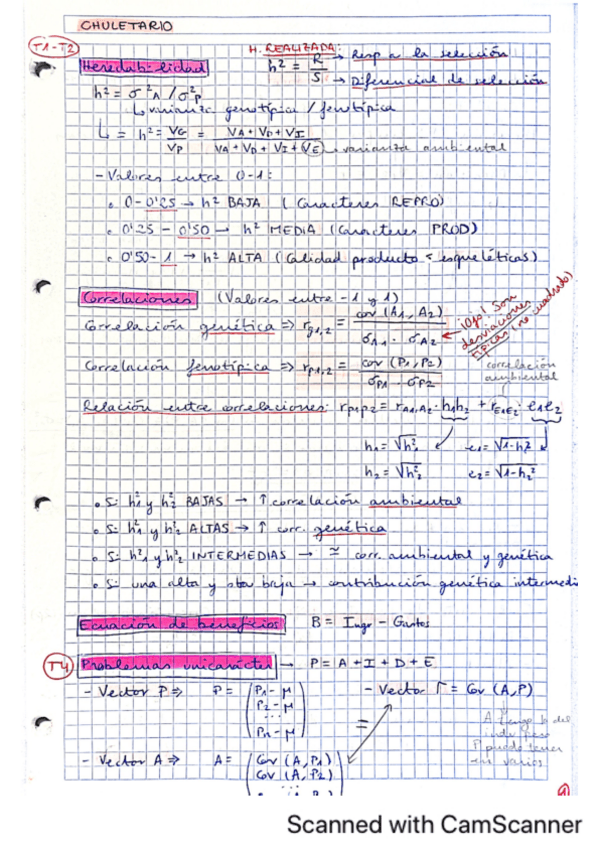 CHULETARIO
T1-T2
H. REALIZADA:
Heredabilidad
h² = R/S → Resp a la selección
→ Diferencial de selección
h² = σ²A / σ²p
↳ varianza genotípica / fenotípica
↳ = h² = VG/VP = (VA + VD + VI)/(VA + VD + VI + VE) → varianza ambiental
- Valores entre 0-1:
• 0 - 0'25 → h² BAJA (Caracteres REPRO)
• 0'25 - 0'50 → h² MEDIA (Caracteres PROD)
• 0'50 - 1 → h² ALTA (Calidad producto + esqueléticas)
Correlaciones (Valores entre -1 y 1)
Correlación genética ⇒ rg1,2 = cov (A1, A2) / σA1 · σA2
¡Ojo! Son desviaciones típicas (no cuadrado)
Correlación fenotípica ⇒ rp1,2 = cov (P1, P2) / σP1 · σP2
correlación ambiental
Relación entre correlaciones: rp1p2 = rA1A2 · h1h2 + rE1E2 · e1e2
h1 = √h²1 e1 = √1-h1²
h2 = √h²2 e2 = √1-h2²
• Si h²1 y h²2 BAJAS → ↑ correlación ambiental
• Si h²1 y h²2 ALTAS → ↑ corr. genética
• Si h²1 y h²2 INTERMEDIAS → ≃ corr. ambiental y genética
• Si una alta y otra baja → contribución genética intermedi
Ecuación de beneficios B = Ingr - Gastos
T4 Problemas unicarácter → P = A + I + D + E
- Vector P ⇒ P = (P1 - μ
P2 - μ
...
Pn - μ)
- Vector Γ = Cov (A,P)
=
A tengo 1 del
indv pero
P puedo tener
en varios
- Vector A ⇒ A = (Cov (A, P1)
Cov (A, P2)
Scanned with CamScanner